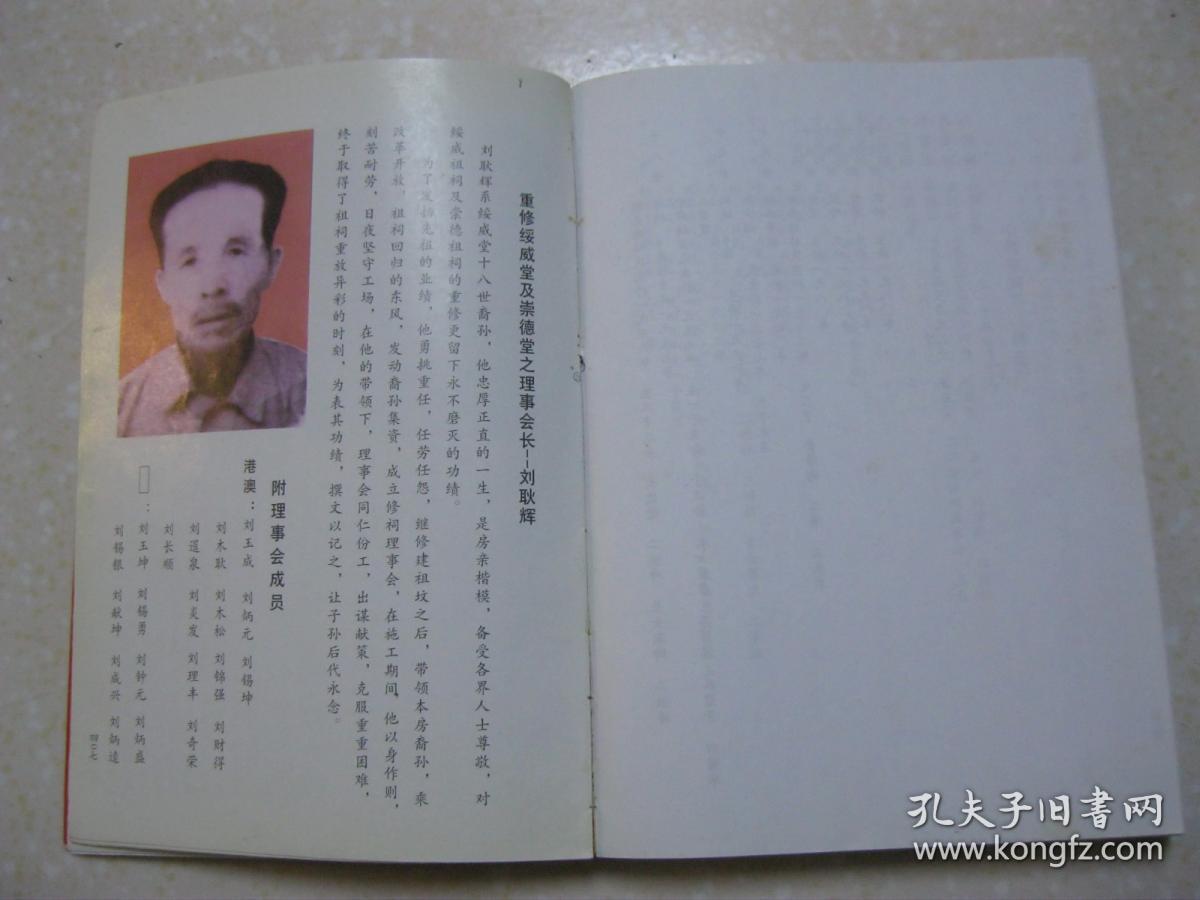 重修绥威堂及崇德堂之理事会长--刘耿辉
刘耿辉系绥威堂十八世裔孙，他忠厚正直的一生，是房亲楷模，备受各界人士尊敬，对
绥威祖祠及崇德祖祠的重修更留下永不磨灭的功绩。
为了发扬先祖的业绩，他勇挑重任，任劳任怨，继修建祖坟之后，带领本房裔孙，乘
改革开放，祖祠回归的东风，发动裔孙集资，成立修祠理事会，在施工期间，他以身作则，
刻苦耐劳，日夜坚守工场，在他的带领下，理事会同仁份工，出谋献策，克服重重困难，
终于取得了祖祠重放异彩的时刻，为表其功绩，撰文以记之，让子孙后代永念。
附理事会成员
港澳：刘玉成 刘炳元 刘锡坤
刘木耿 刘木松 刘锦强 刘财得
刘遥泉 刘炎发 刘理丰 刘奇荣
刘长顺
：刘玉坤 刘锡勇 刘钟元 刘炳盛
刘锡银 刘献坤 刘成兴 刘炳远
四〇七
孔夫子旧书网
www.kongfz.com